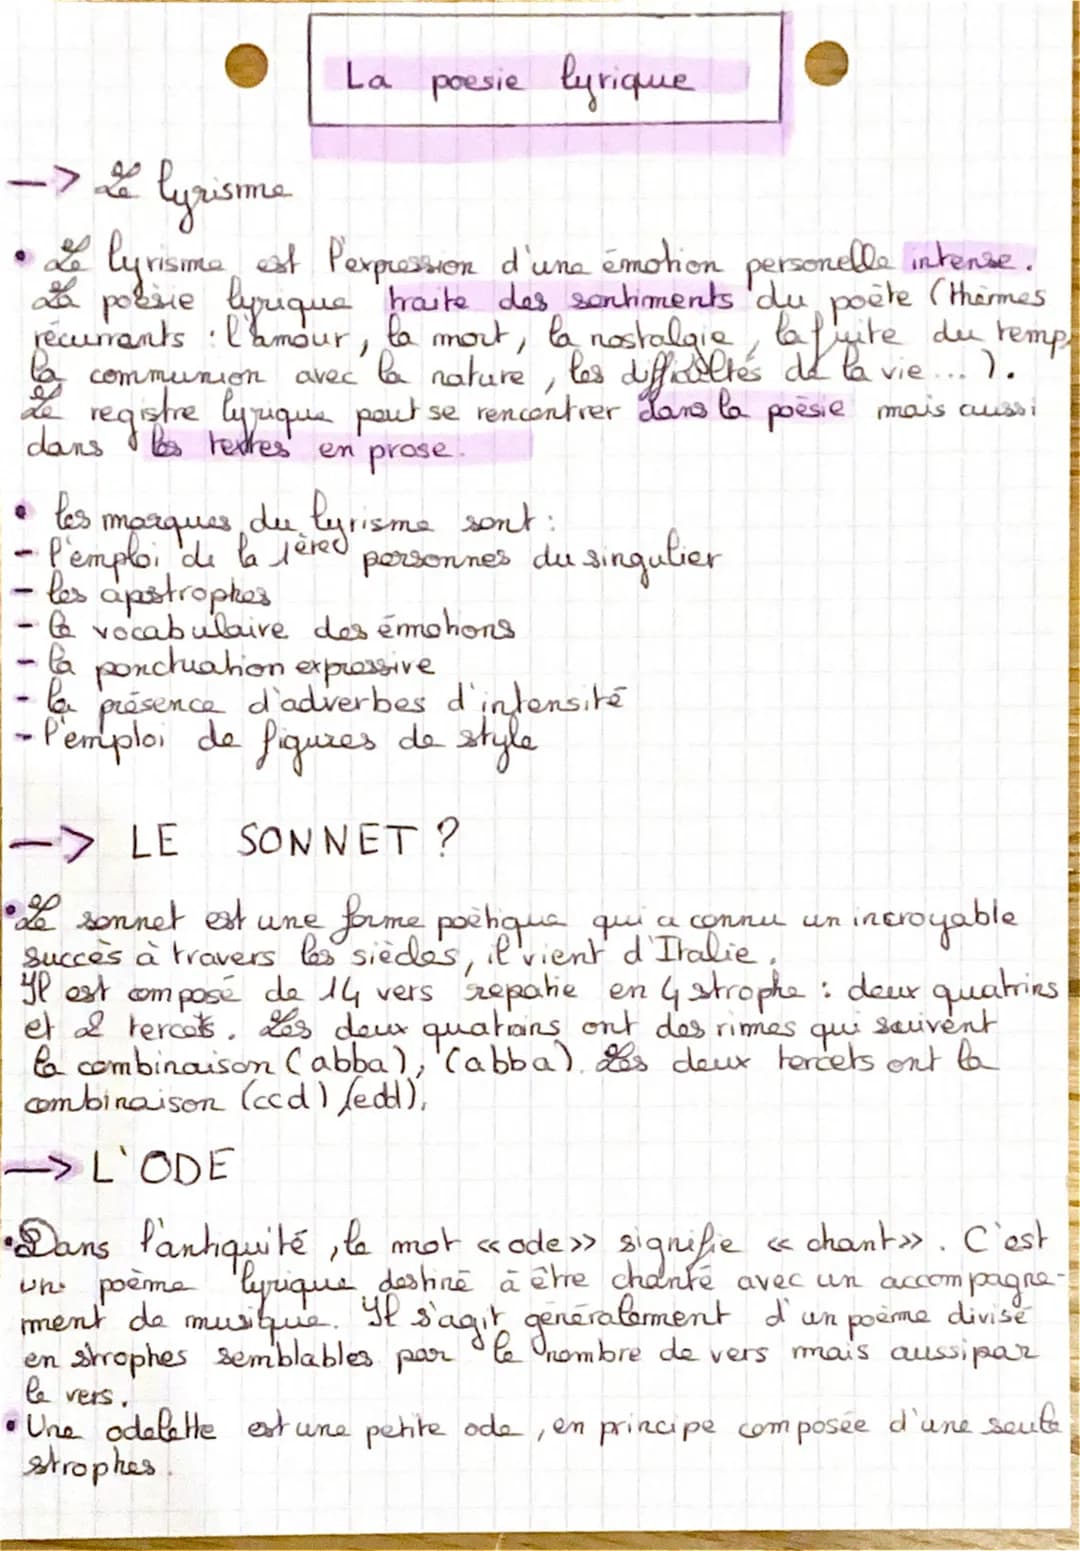 La poesie lyrique
-> Le lyrisme
• Le lyrisme est l'expression d'une émotion personelle intense.
La poèsie lyrique traite des sentiments du poète (thèmes
récurrants : l'amour, la mort, la nostalgie, la fuite du temp,
la communion avec la nature, les difficultés de la vie... ).
Le registre lyrique peut se rencontrer dans la poèsie mais aussi
dans les textes en prose.
• les marques du lyrisme sont :
- l'emploi de la 1ère personnes du singulier
- les apostrophes
- le vocabulaire des émmotions
- la ponctuation expressive
- la présence d'adverbes d'intensité
- l'emploi de figures de style
-> LE SONNET ?
• Le sonnet est une forme poètique qui a connu un incroyable
succès à travers les siècles, il vient d'Italie.
Il est composé de 14 vers repatie en 4 strophe : deux quatrins
et 2 tercets. Les deux quatrains ont des rimes qui suivent
la combinaison (abba), (abba). Les deux tercets ont la
combinaison (ccd) (edd).
-> L'ODE
• Dans l'antiquité, le mot «ode» signifie «chant». C'est
un poème lyrique destiné à être chanté avec un accompagne-
ment de musique. Il s'agit généralement d'un poème divisé
en strophes semblables par le nombre de vers mais aussi par
le vers.
• Une odelette est une petite ode, en principe composée d'une seule
strophes.